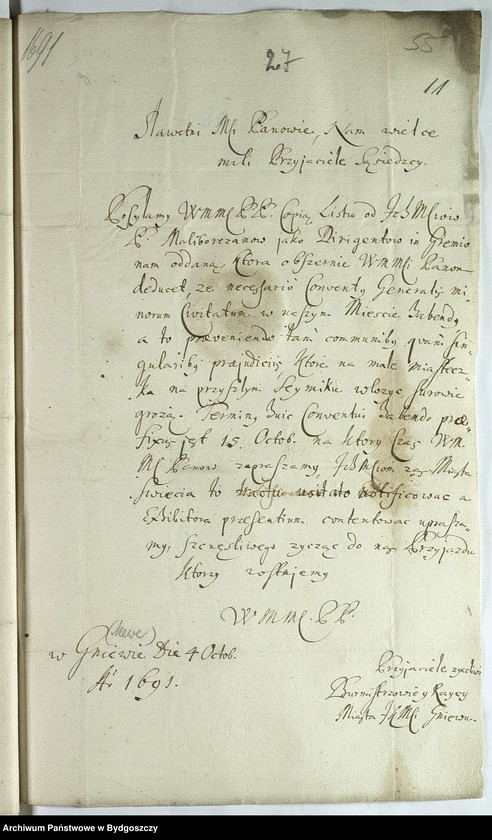 1691
27
55
11
Sławetni Mći Panowie, Nam wielce
mili Przyjaciele Sąsiedzcy.
Posyłamy WmmćPP. Copią Listu od
PP. Malborczanow jako Dirigentow in Gremio
nam oddaną, Ktora obszernie WmMći Panom
deducet, ze necessario Conventus Generalis mi-
norum Civitatum w naszym Miescie habendus
a to praeveniendo tam communibus quam sin-
gularibus praejudiciis, Ktore na małe miastecz-
ka na przyszłym Seymiku włozyc surowie
grozą. Terminus huic Conventui habendo prae-
fixus jest 15. Octob. na ktory czas Wm
Mć Panow zapraszamy, zas Miasta
Swiecia to tractu usitato notificowac a
Exhibitora praesentium contentowac uprasza-
my, szczęsliwego zycząc do nas Przyjazdu
Ktorzy zostajemy
WMMć. PP.
(Mewe)
w Gniewie Die 4 Octob.
Aº 1691.
Przyjaciele zyczliwi
Burmistrzowie y Raycy
Miasta JKMći Gniewu.
Archiwum Państwowe w Bydgoszczy